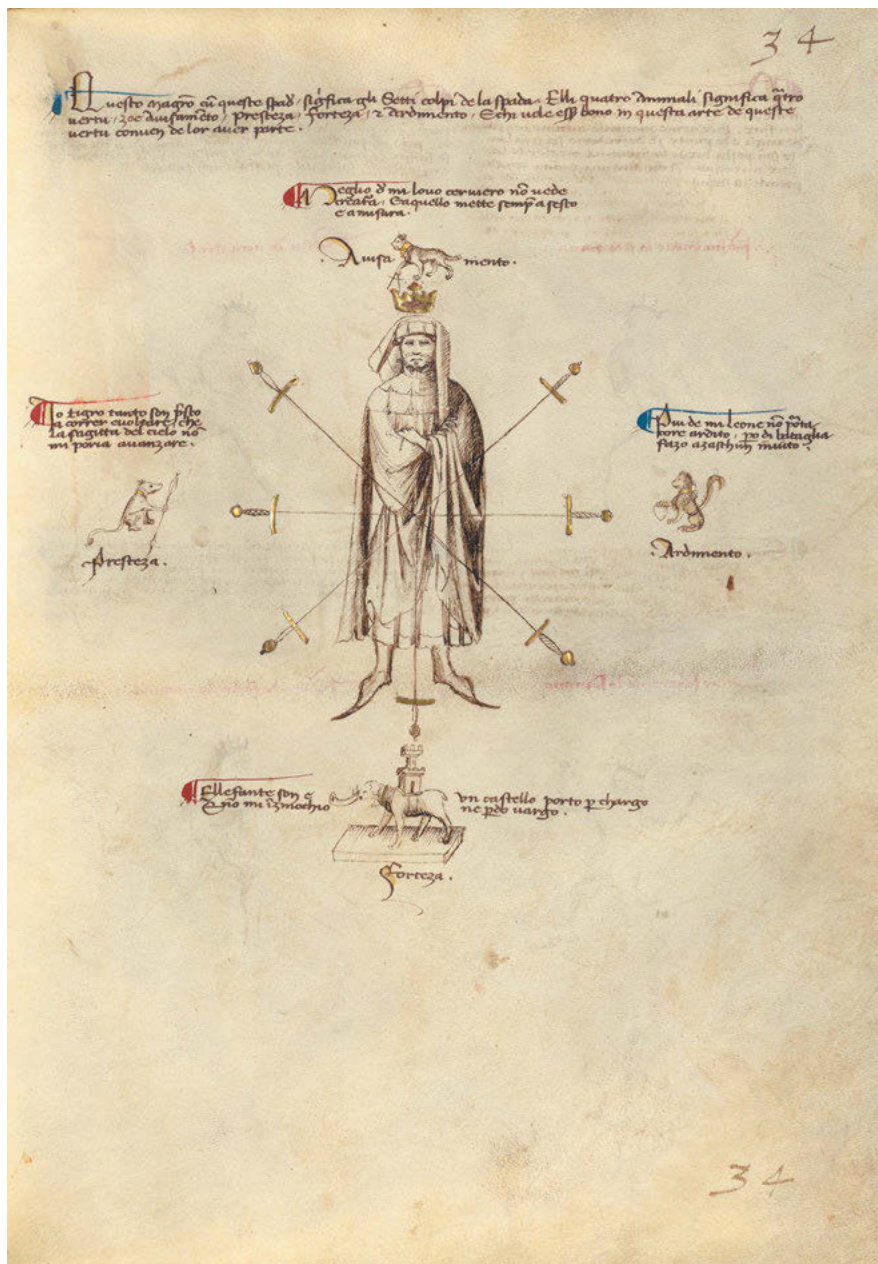 34
Questo magrō cū queste spad̄ sigīfica gli Setti colpi de la spada. Elli quatro animali significa q̄tro
vertu, zoe avisamēto, presteza, forteza, & ardimento. E chi vole ess̄ bono in questa arte de queste
vertu conven de lor aver parte.
Meglio d̄ mi lovo cerviero nō vede
creat̄a. E aquello mette semp̄ a sesto
e a misura.
Avisa mento.
Io tigro tanto son p̄sto
a correr e voltare, che
la sagitta del cielo nō
mi poria avanzare.
Presteza.
Piu de mi leone nō porta
core ardito, pō di bataglia
fazo azaschun invito.
Ardimento.
Ellefante son e un castello porto p̄ chargo
E nō mi īzinochio ne p̄do vargo.
Forteza.
34